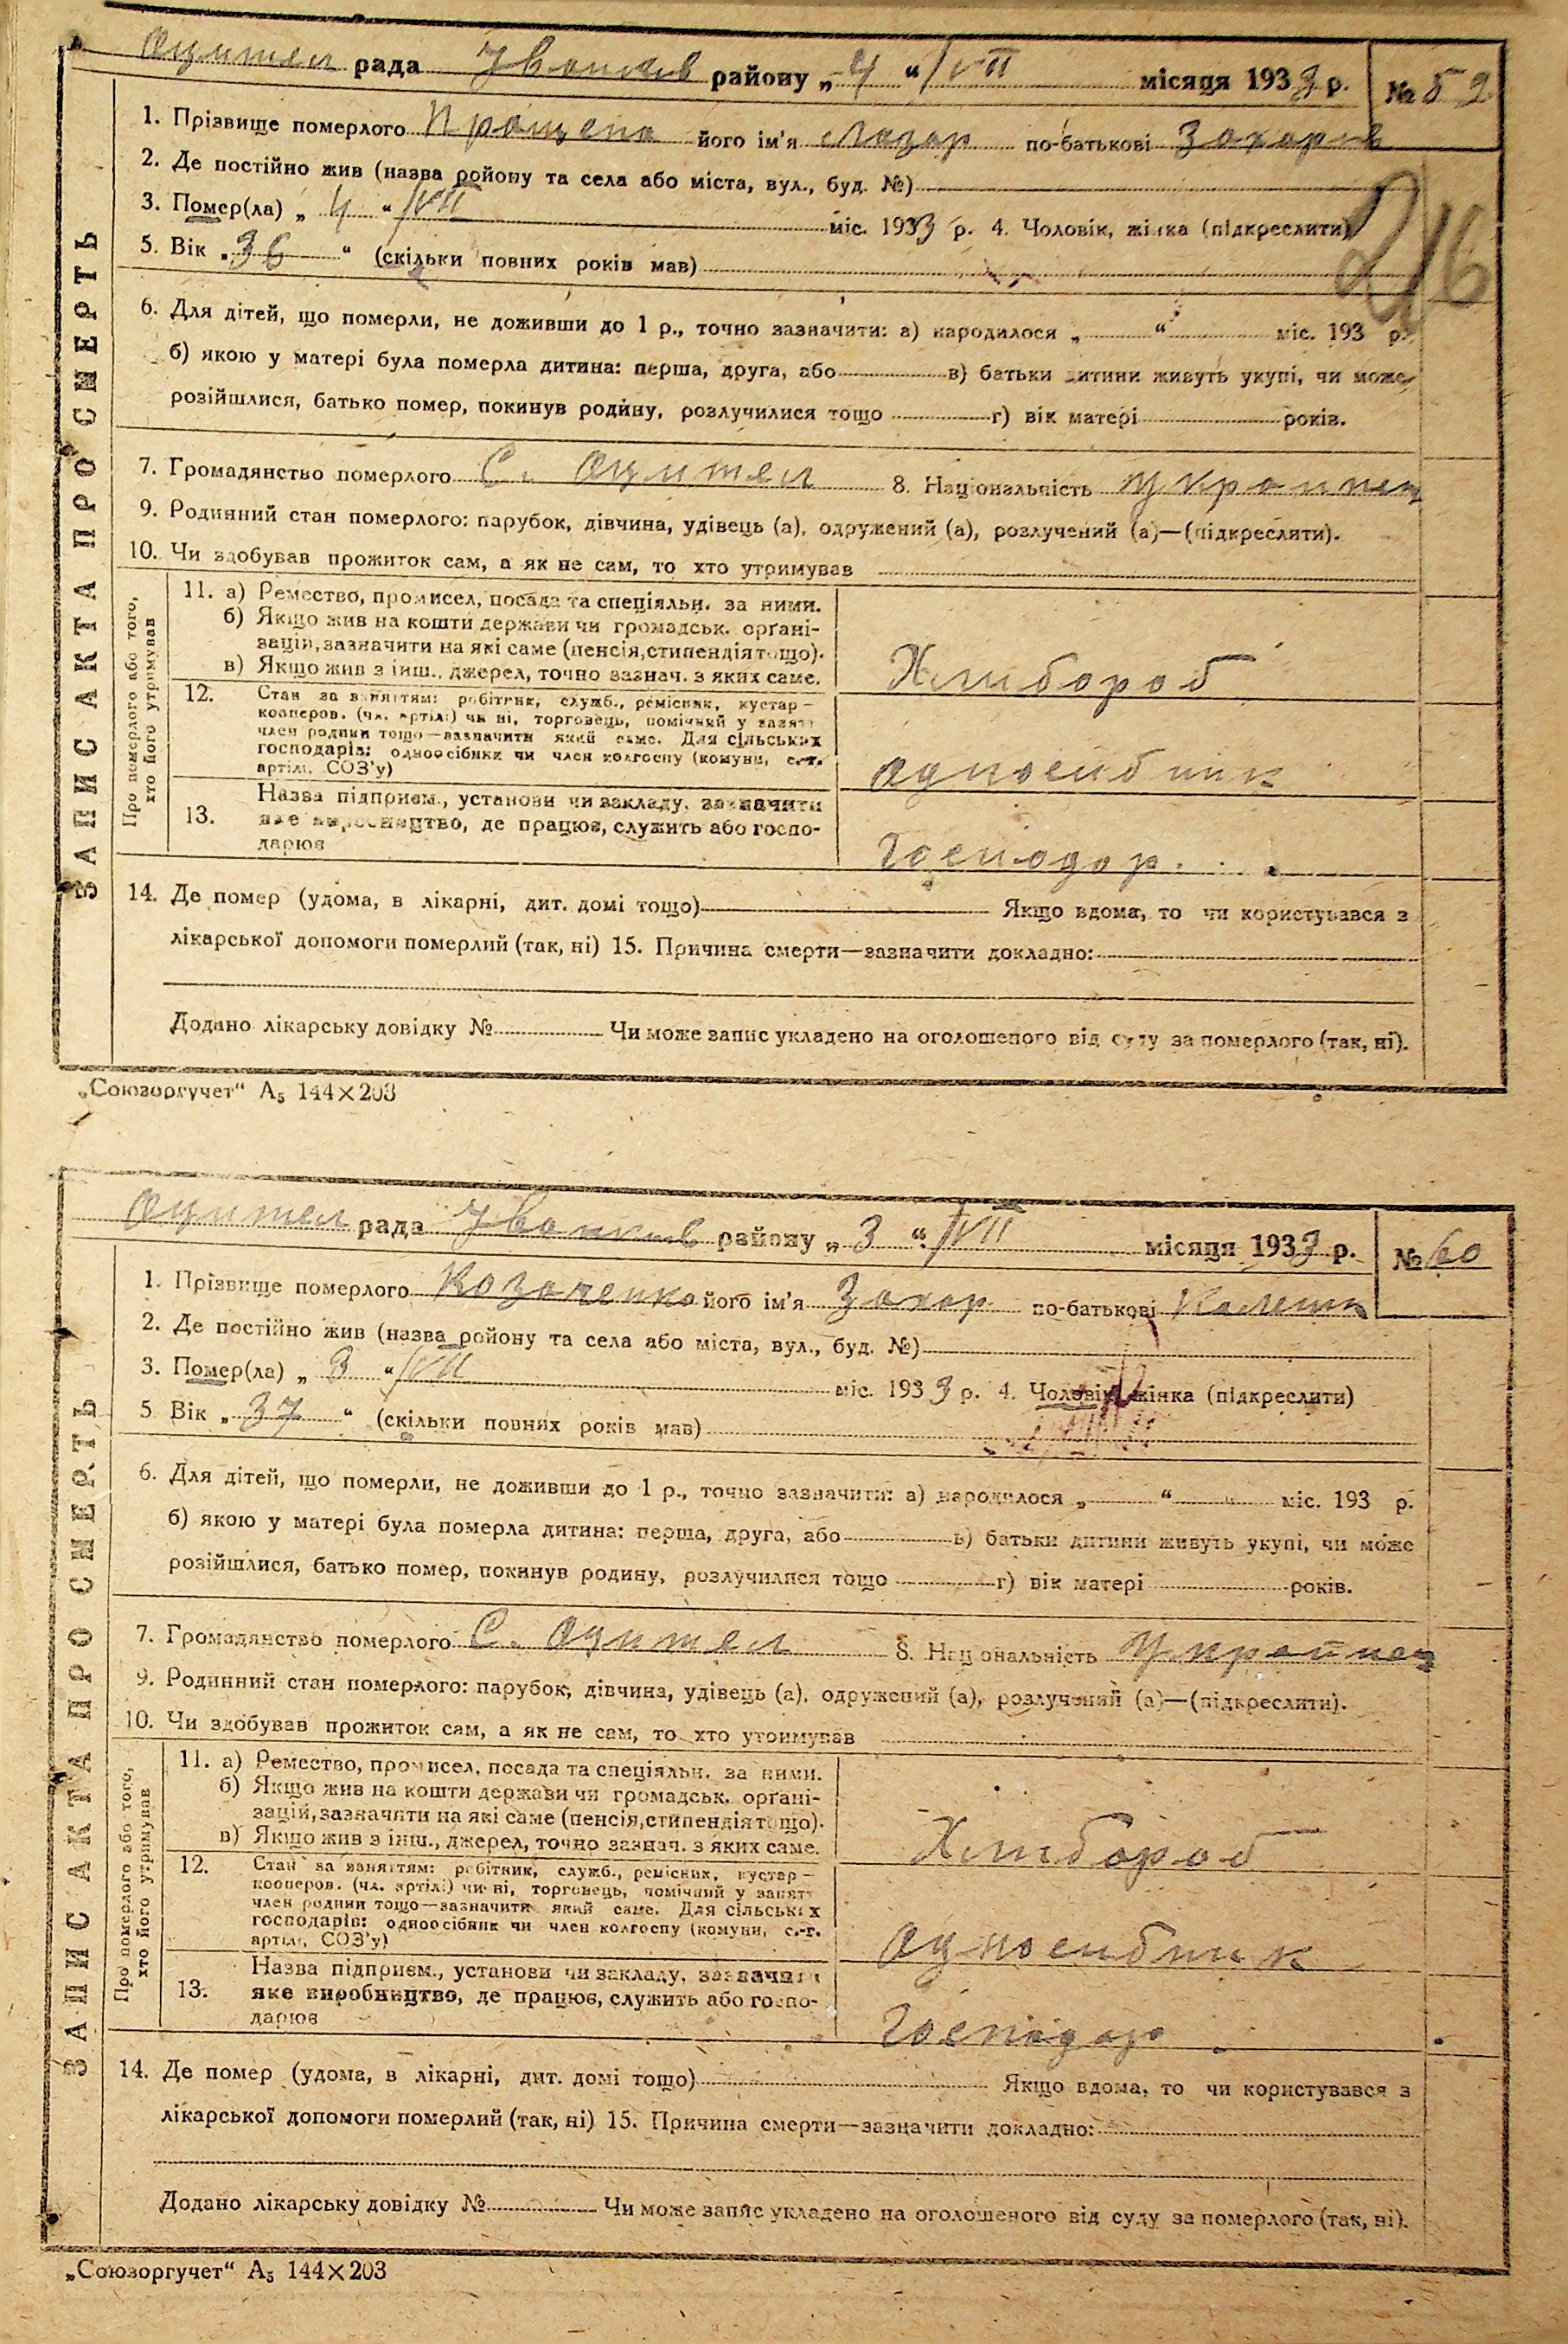 Оцител рада Іванків району „ 4 “ /VII місяця 1933 р. № 59
1. Прізвище померлого Прощепа його ім'я Лазар по-батькові Захарів
2. Де постійно жив (назва ройону та села або міста, вул., буд. №)
3. Помер(ла) „ 4 “ /VII міс. 1933 р. 4. Чоловік, жінка (підкреслити)
216
5. Вік „ 36 “ (скільки повних років мав)
6. Для дітей, що померли, не доживши до 1 р., точно зазначити: а) народилося „ “ міс. 193 р.
б) якою у матері була померла дитина: перша, друга, або в) батьки дитини живуть укупі, чи може
розійшлися, батько помер, покинув родину, розлучилися тощо г) вік матері років.
7. Громадянство померлого С. Оцител 8. Національність Украинец
9. Родинний стан померлого: парубок, дівчина, удівець (а), одружений (а), розлучений (а)—(підкреслити).
10. Чи здобував прожиток сам, а як не сам, то хто утримував
ЗАПИС АКТА ПРО СМЕРТЬ
Про померлого або того,
хто його утримував
11. а) Ремество, промисел, посада та спеціяльн. за ними.
б) Якщо жив на кошти держави чи громадськ. орґані-
зацій, зазначити на які саме (пенсія, стипендія тощо).
в) Якщо жив з інш., джерел, точно зазнач. з яких саме.
Хлибороб
12. Стан за заняттям: робітник, служб., ремісник, кустар—
кооперов. (чл. артілі) чи ні, торговець, помічний у занят
член родини тощо—зазначити який саме. Для сільських
господарів: одноосібник чи член колгоспу (комуни, с.-г.
артілі, СОЗ'у)
односибник
13. Назва підприєм., установи чи закладу, зазначити
яке виробництво, де працює, служить або госпо-
дарює
Господар.
14. Де помер (удома, в лікарні, дит. домі тощо) Якщо вдома, то чи користувався з
лікарської допомоги померлий (так, ні) 15. Причина смерти—зазначити докладно:
Додано лікарську довідку № Чи може запис укладено на оголошеного від суду за померлого (так, ні).
„Союзоргучет“ А5 144×203
Оцител рада Іванків району „ 3 “ /VII місяця 1933 р. № 60
1. Прізвище померлого Козаченко його ім'я Захар по-батькові
2. Де постійно жив (назва ройону та села або міста, вул., буд. №)
3. Помер(ла) „ 3 “ /VII міс. 1933 р. 4. Чоловік, жінка (підкреслити)
5 Вік „ 37 “ (скільки повних років мав)
6. Для дітей, що померли, не доживши до 1 р., точно зазначити: а) народилося „ “ міс. 193 р.
б) якою у матері була померла дитина: перша, друга, або в) батьки дитини живуть укупі, чи може
розійшлися, батько помер, покинув родину, розлучилися тощо г) вік матері років.
7. Громадянство померлого С. Оцител 8. Національність Украинец
9. Родинний стан померлого: парубок, дівчина, удівець (а), одружений (а), розлучений (а)—(підкреслити).
10. Чи здобував прожиток сам, а як не сам, то хто утримував
ЗАПИС АКТА ПРО СМЕРТЬ
Про померлого або того,
хто його утримував
11. а) Ремество, промисел, посада та спеціяльн. за ними.
б) Якщо жив на кошти держави чи громадськ. орґані-
зацій, зазначити на які саме (пенсія, стипендія тощо).
в) Якщо жив з інш., джерел, точно зазнач. з яких саме.
Хлибороб
12. Стан за заняттям: робітник, служб., ремісник, кустар—
кооперов. (чл. артілі) чи ні, торговець, помічний у занят
член родини тощо—зазначити який саме. Для сільських
господарів: одноосібник чи член колгоспу (комуни, с.-г.
артілі, СОЗ'у)
односибник
13. Назва підприєм., установи чи закладу, зазначити
яке виробництво, де працює, служить або госпо-
дарює
Господар.
14. Де помер (удома, в лікарні, дит. домі тощо) Якщо вдома, то чи користувався з
лікарської допомоги померлий (так, ні) 15. Причина смерти—зазначити докладно:
Додано лікарську довідку № Чи може запис укладено на оголошеного від суду за померлого (так, ні).
„Союзоргучет“ А5 144×203